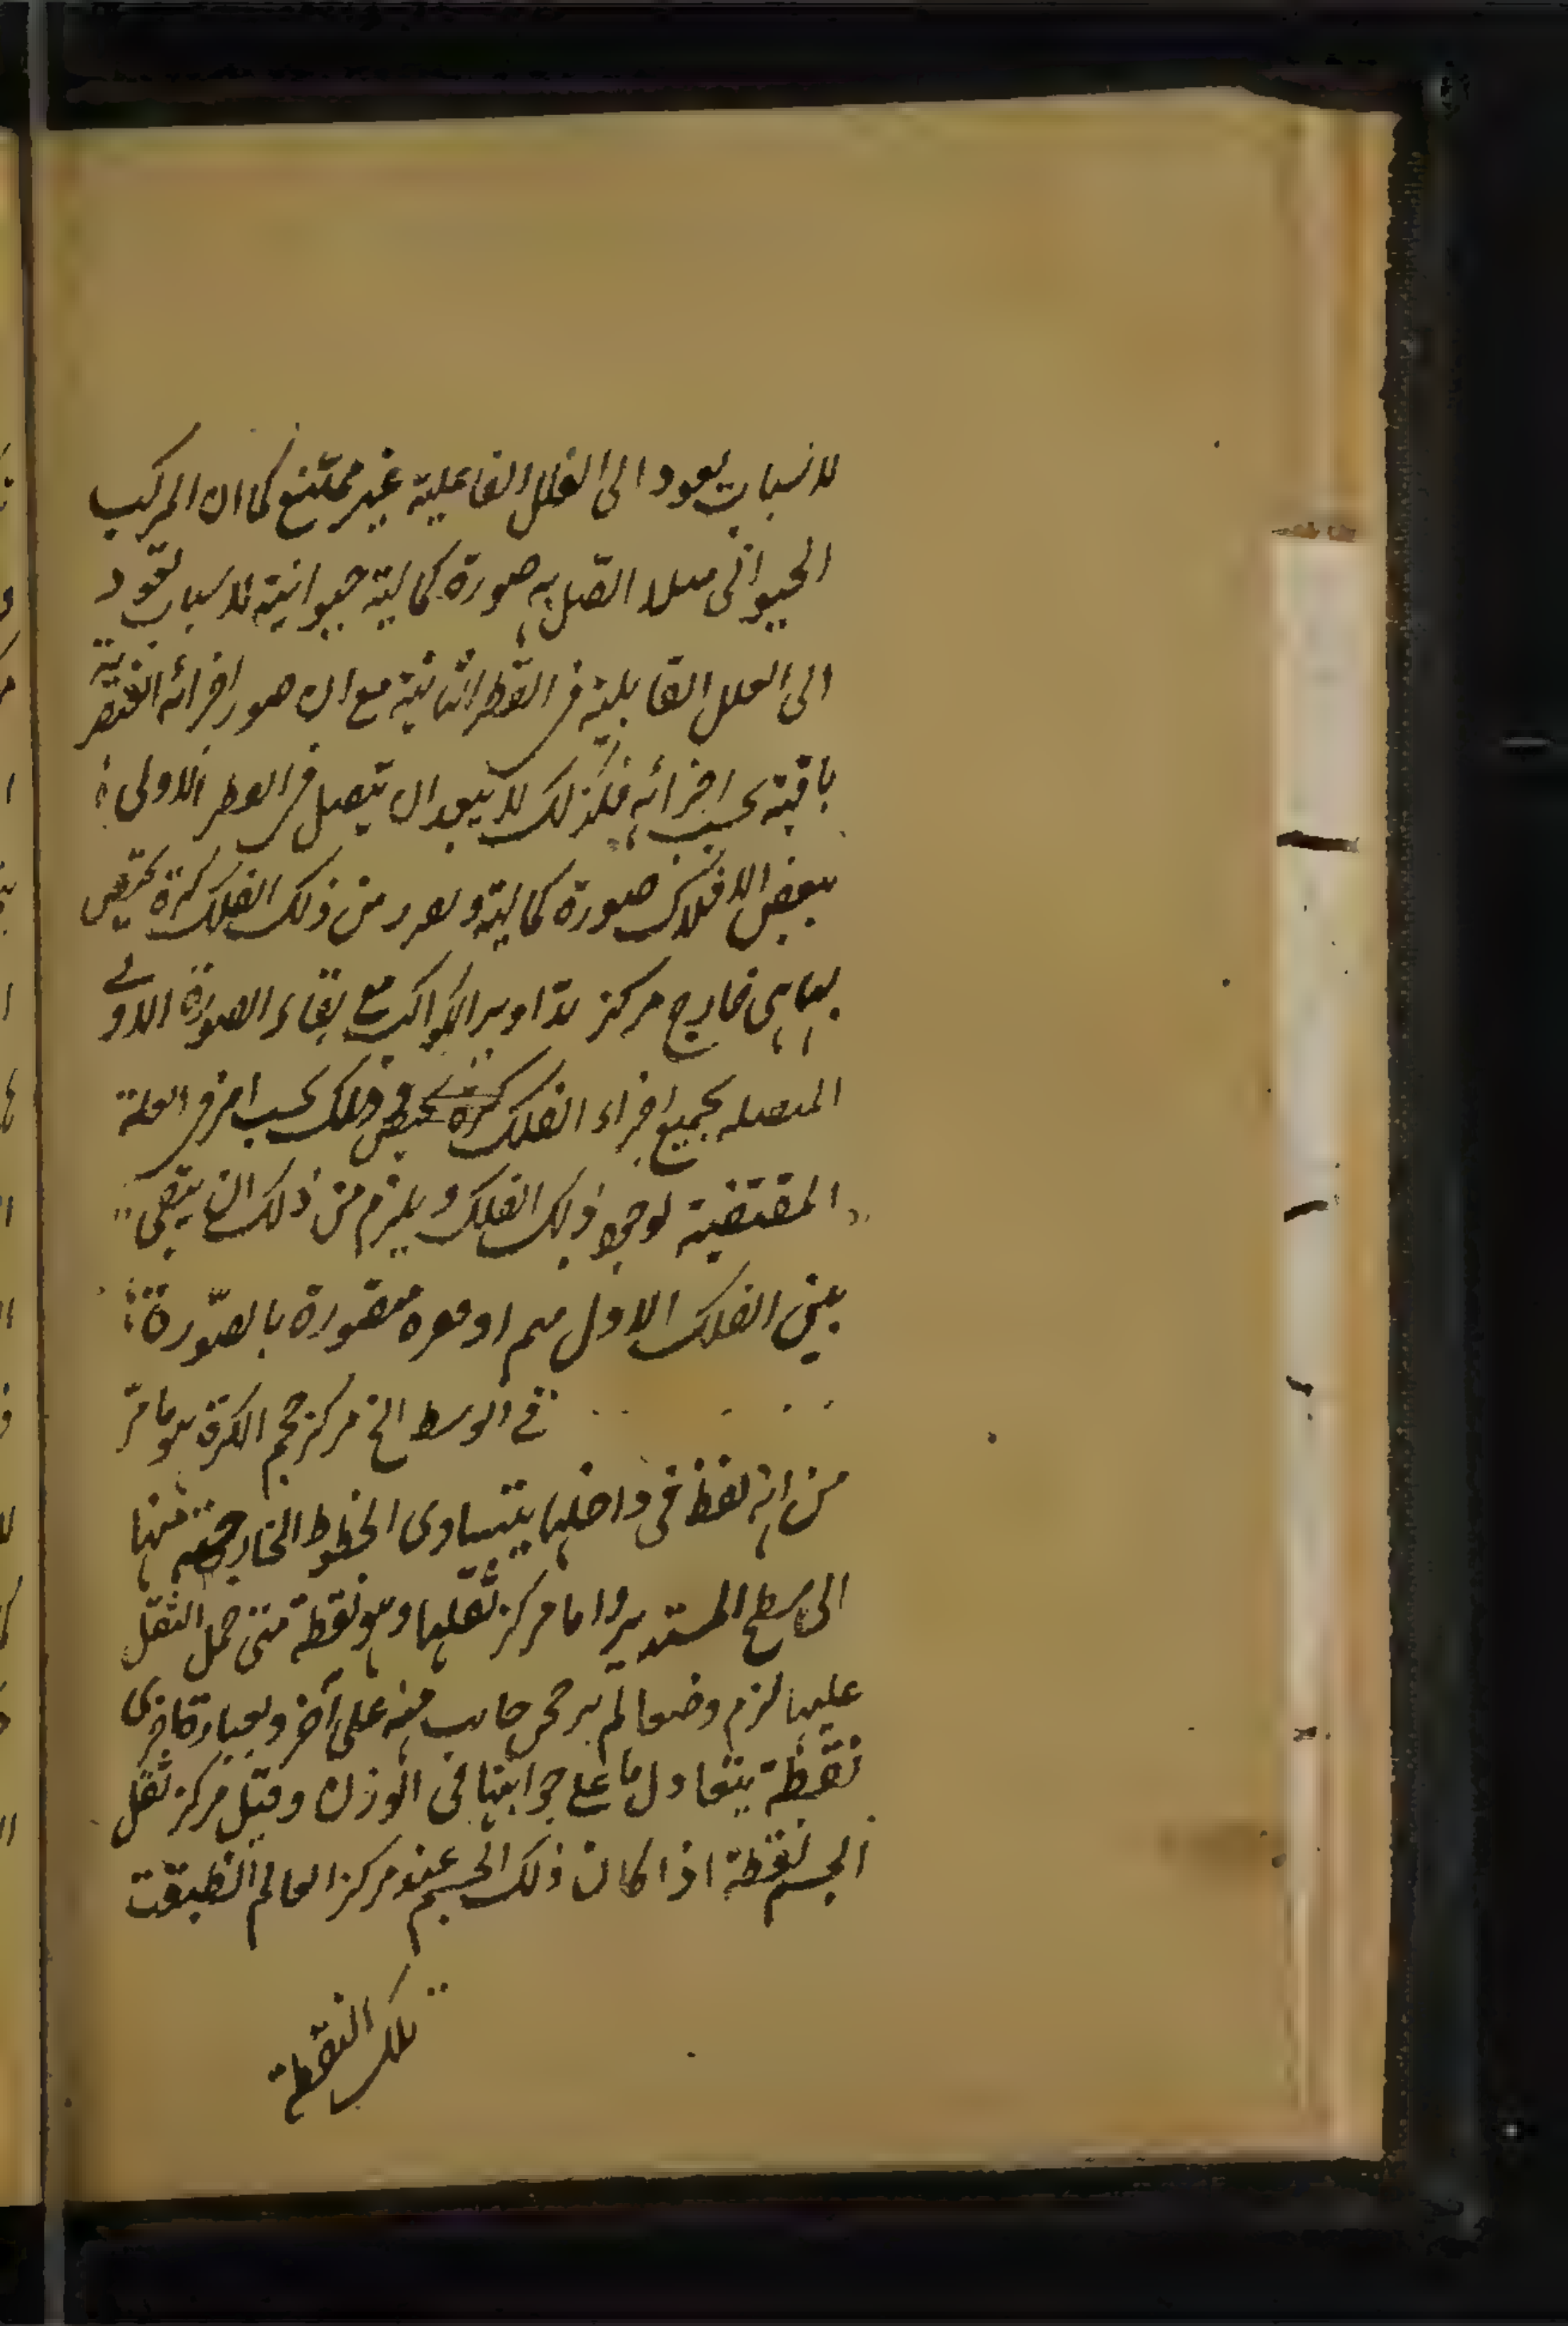 لاسباب يعود الى العلل الفاعلية غير ممتنع كما ان المركب
الحيوانى مثلا اتصل به صورة كمالية حيوانية لاسباب تعود
الى العلل القابلية فى الفطر الثانية مع ان صور اجزائه العنصرية
باقية بحسب اجزائه فكذلك لا يبعد ان يتصل فى الفطر الاولى
ببعض الافلاك صورة كمالية و من ذلك الفلك كرة يختص
بها هى خارج مركز تداوير الكواكب مع بقاء الصورة الاولى
المتصلة بجميع اجزاء الفلك كرة يختص ذلك بحسب امر فى العلة
المقتضية لوجود ذلك الفلك و يلزم من ذلك ان يبقى
بين الفلك الاول متصورة بالصورة
فى الوسط الخ مركز حجم الكرة هو ما مر
من انه نقطة فى داخلها يتساوى الخطوط الخارجة منها
الى السطح المستدير واما مركز ثقلها وهو نقطة متى حمل الثقل
عليها لزم وضعا لم يرجح جانب منه على آخر وبعبارة اخرى
نقطة يتعادل ما على جوانبها فى الوزن وقيل مركز ثقل
الجسم نقطة اذا كان ذلك الجسم عند مركز العالم انطبقت
تلك النقطة